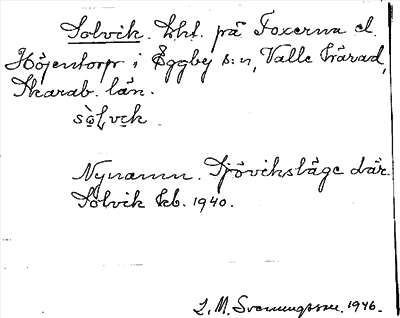 Solvik. Lht. på Foxerna el.
Höjentorp i Eggby s:n, Valle härad,
Skarab. län.
sò̀lvek
Nynamn. Sjöviksläge där.
Solvik kb. 1940.
L. M. Svenungsson. 1946.